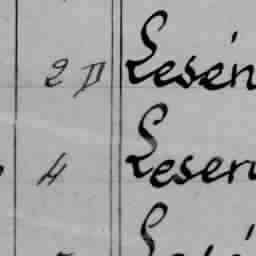 2 II Lesén
4 Leser